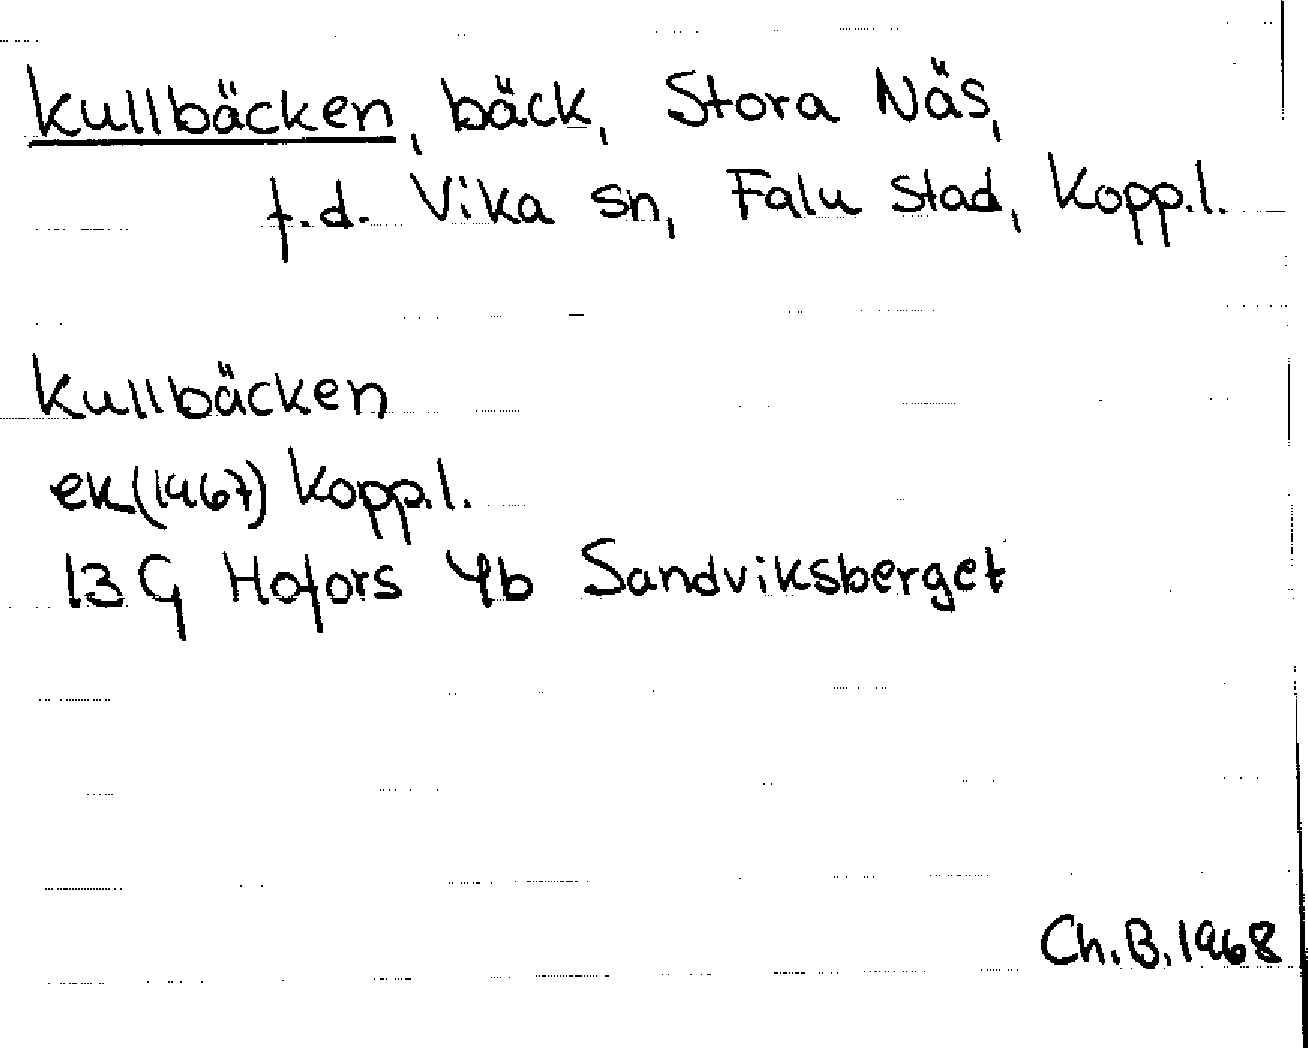 Kullbäcken, bäck, Stora Näs,
f.d. Vika sn, Falu stad, Kopp.l.
Kullbäcken
ek (1967) Kopp.l.
13 G Hofors 4b Sandviksberget
Ch. B. 1968